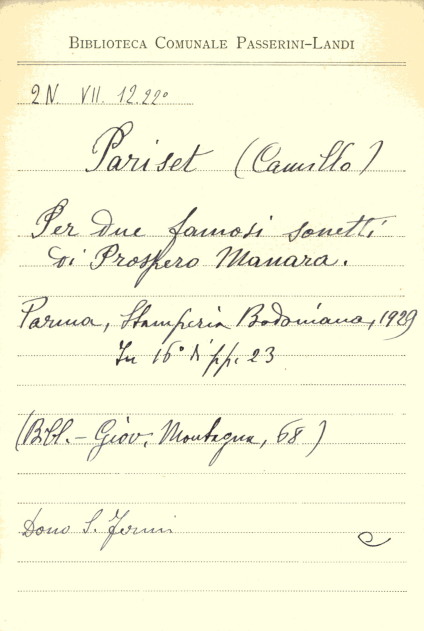 BIBLIOTECA COMUNALE PASSERINI-LANDI
2N. VII. 12.22°
Pariset (Camillo)
Per due famosi sonetti
di Prospero Manara.
Parma, Stamperia Bodoniana, 1929
In 16° di pp. 23
(Bibl. - Giov. Montagna, 68)
Dono S. Fermi